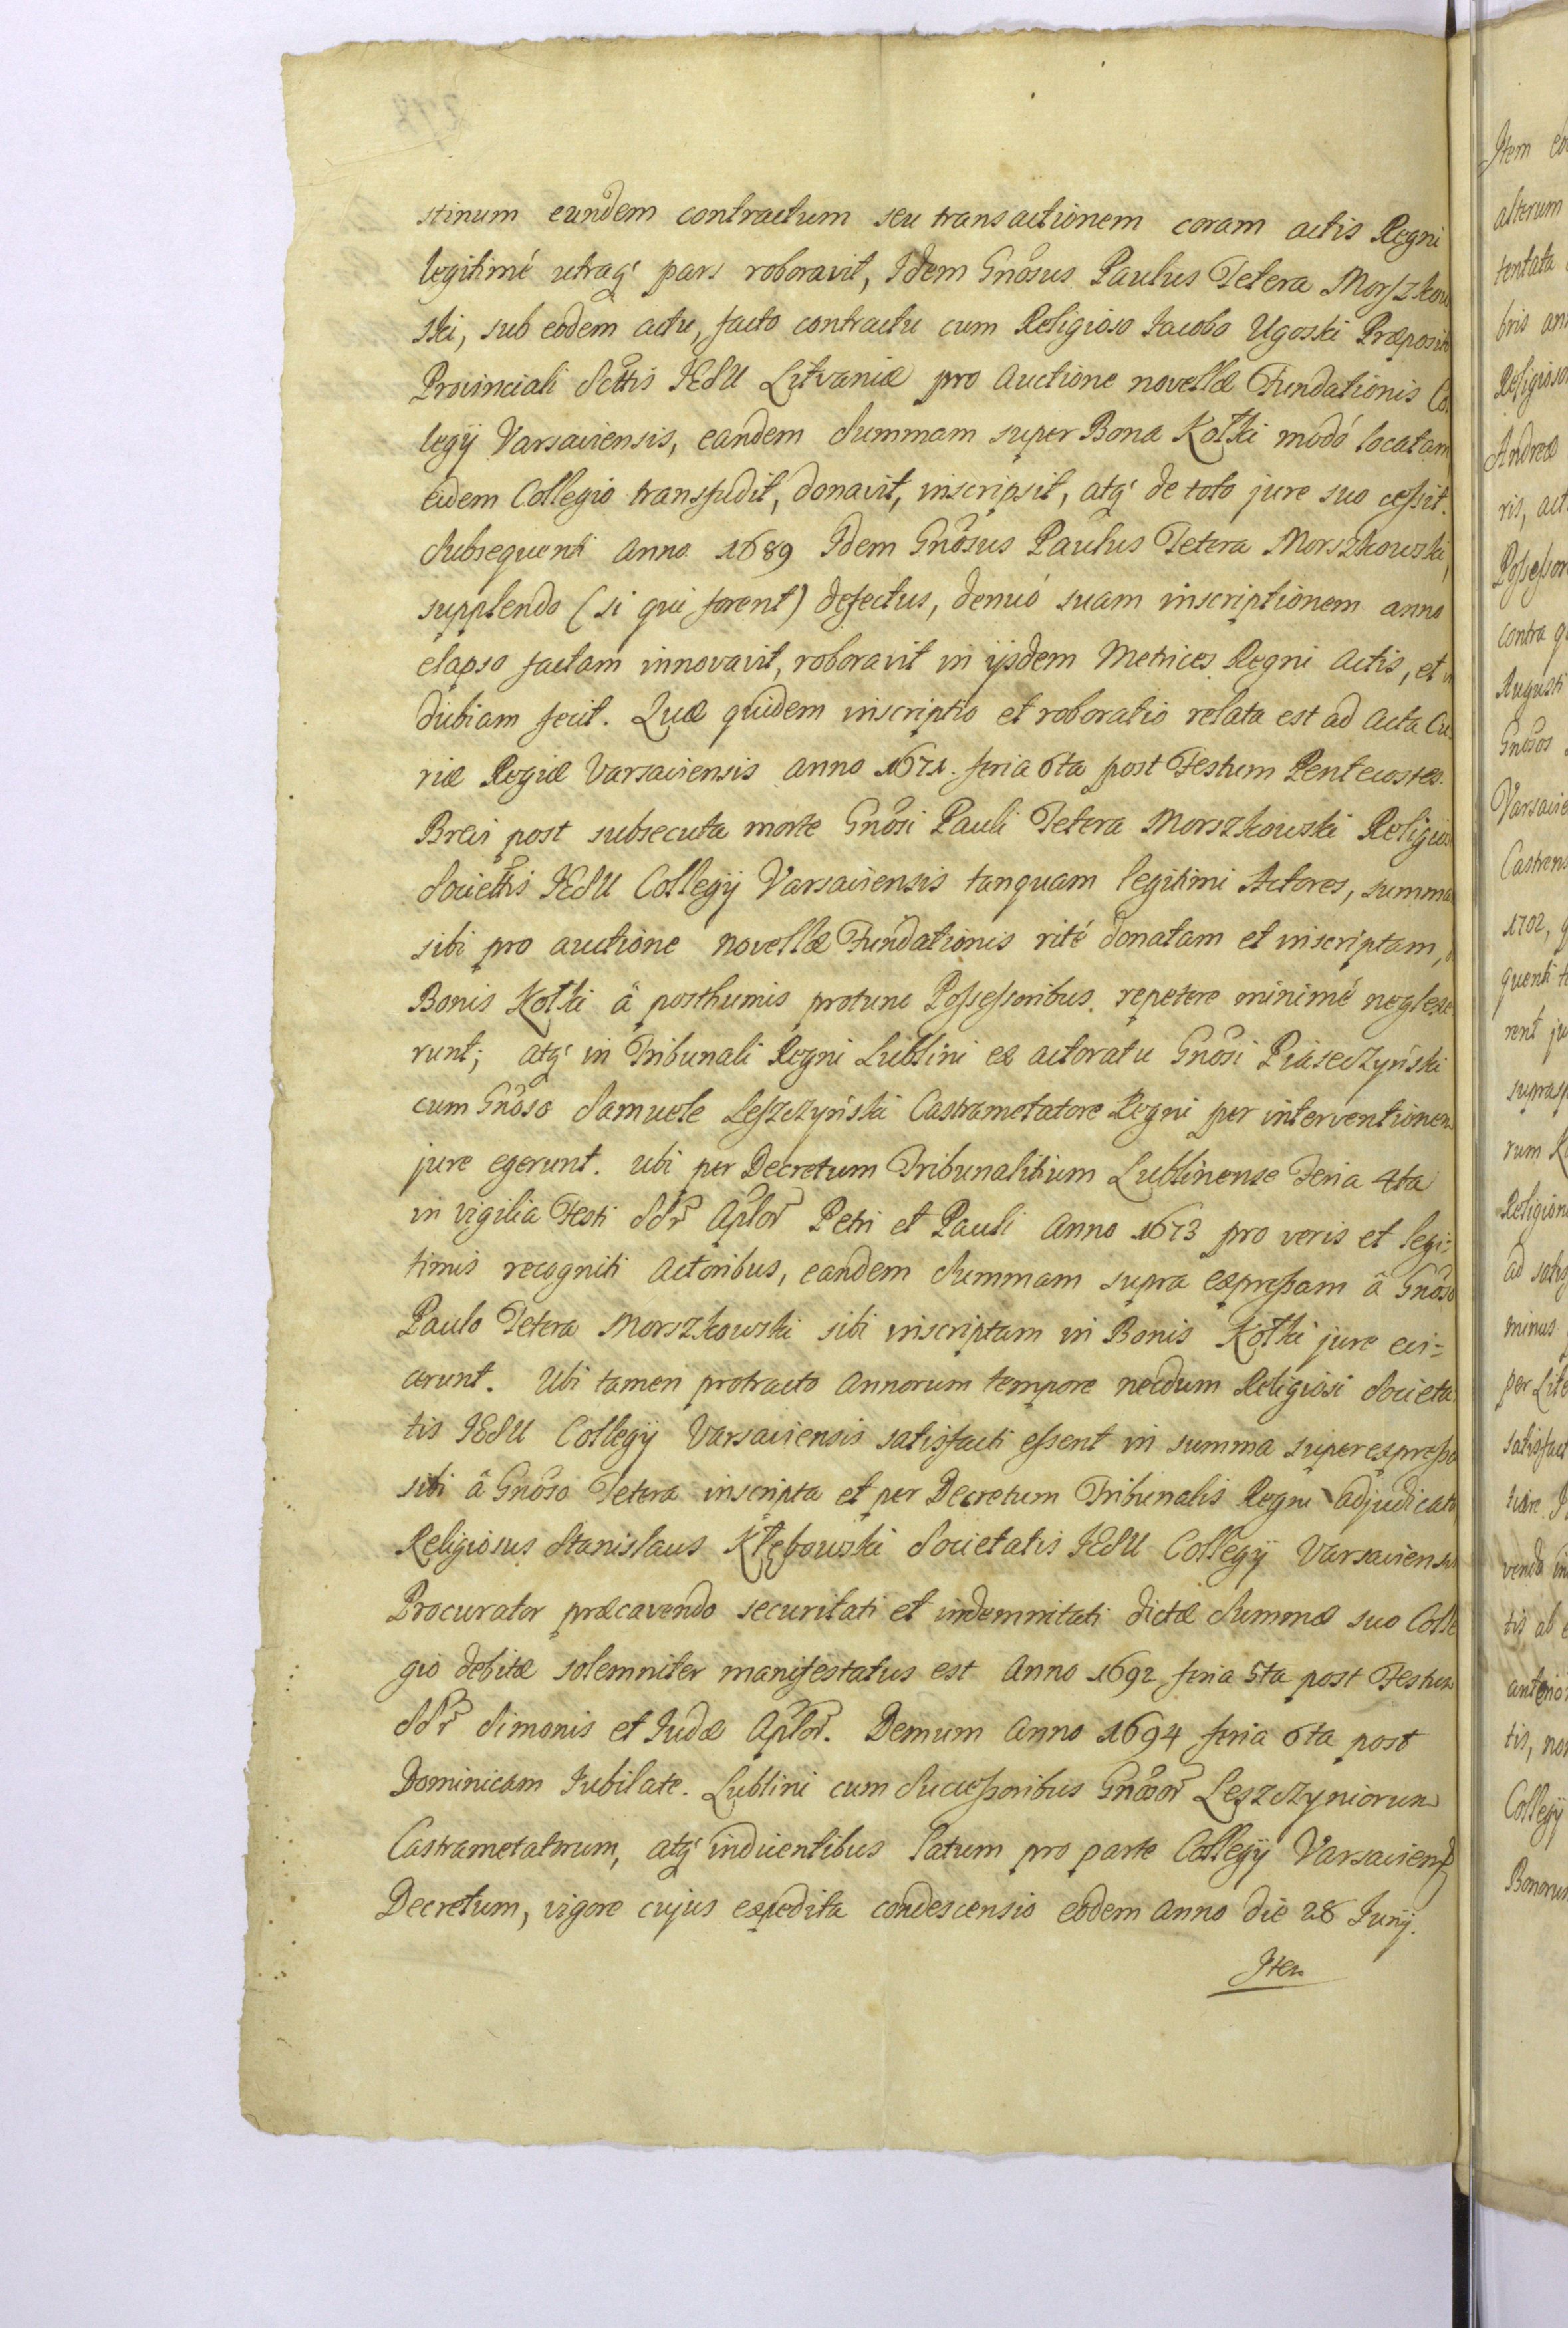 stinum eundem contractum seu transactionem coram actis Regni
legitimé utraq' pars roboravit, Idem Gnõsus Paulus Tetera Morszkow
ski, sub eodem actu, facto contractu cum Religioso Iacobo Ugoski Præposito
Provinciali Scttis IESU Litvaniæ pro Auctione novellæ Fundationis Col
legij Varsaviensis, eandem Summam super Bona Kotki modó locatam
eidem Collegio transfudit, donavit, inscripsit, atq' de toto jure suo cessit.
Subsequenti Anno 1689 Idem Gnõsus Paulus Tetera Morszkowski,
supplendo (si qui forent) defectus, denuó suam inscriptionem anno
elapso factam innovavit, roboravit in ijsdem Metrices Regni Actis, et in
dubiam fecit. Quæ quidem inscriptio et roboratio relata est ad Acta Cu
riæ Regiæ Varsaviensis Anno 1671. feria 6ta post Festum Pentecostes.
Brevi post subsecuta morte Gnõsi Pauli Tetera Morszkowski Religiosi
Societtis IESU Collegij Varsaviensis tanquam legitimi Actores, summam
sibi pro auctione novellæ Fundationis rité donatam et inscriptam,
Bonis Kotki â posthumis protunc Possessoribus repetere minimé neglexe
runt; atq' in Tribunali Regni Lublini ex actoratu Gnõsi Piaseczyński
cum Gnõso Samuele Leszczyński Castrametatore Regni per interventionem
jure egerunt. Ubi per Decretum Tribunalitium Lublinense Feria 4ta
in vigilia Festi SSr Aplor Petri et Pauli Anno 1673 pro veris et legi=
timis recogniti Actoribus, eandem Summam supra expressam â Gnõso
Paulo Tetera Morszkowski sibi inscriptam in Bonis Kotki jure evi=
cerunt. Ubi tamen protracto Annorum tempore necdum Religiosi Societa
tis IESU Collegij Varsaviensis satisfacti essent in summa superexpressa
sibi â Gnõso Tetera inscripta et per Decretum Tribunalis Regni adjudicata
Religiosus Stanislaus Kłębowski Societatis IESU Collegij Varsaviensis
Procurator præcavendo securitati et indemnitati dictæ Summæ suo Colle
gio debitæ solemniter manifestatus est Anno 1692 feria 5ta post Festum
SSr Simonis et Iudæ Aplor. Demum Anno 1694 feria 6ta post
Dominicam Iubilate. Lublini cum Successoribus Gnõsor Leszczyniorum
Castrametatorum, atq' inducentibus latum pro parte Collegij Varsaviens
Decretum, vigore cujus expedita condescensio eodem Anno die 28 Iunij.
Item
Item
alterum
tentata
bris
Religioso
Andreæ
ris, act
Possessor
contra
Augusti
Gnõsos
Varsavie
Castrens
1702,
quenti
rent
suprasp
rum
Religion
ad satis
minus
per Lite
satisfact
vendo
tis, ab
anterior
tis, non
Collegij
Bonorum